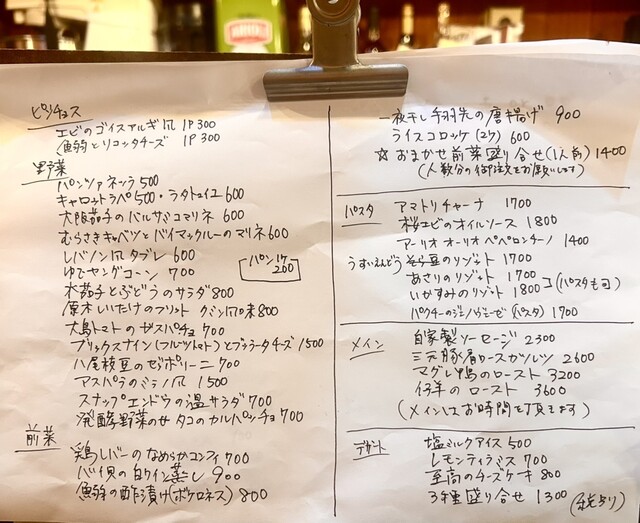 ピンチョス
エビのゴイスアルギ風 1P 300
魚鰯とリコッタチーズ 1P 300
野菜
パンツァネッラ 500
キャロットラペ 500・ラタトゥイユ 600
大阪茄子のバルサミコマリネ 600
むらさきキャベツとバイマックルーのマリネ 600
レバノン風タブレ 600
ゆでヤングコーン 700
パン1ケ 200
水茄子とぶどうのサラダ 800
原木しいたけのフリット クミン風味 800
大島トマトのガスパチョ 700
ブリックスナイン(フルーツトマト)とブラータチーズ 1500
八尾枝豆のゼッポリーニ 700
アスパラのミラノ風 1500
スナップエンドウの温サラダ 700
発酵野菜のせタコのカルパッチョ 700
前菜
鶏レバーのなめらかコンフィ 700
バイ貝の白ワイン蒸し 900
魚鰯の酢漬け(ボケロネス) 800
一夜干し手羽先の唐揚げ 900
ライスコロッケ(2ケ) 600
☆おまかせ前菜盛り合せ(1人前) 1400
(人数分の御注文をお願いします)
パスタ
アマトリチャーナ 1700
桜エビのオイルソース 1800
アーリオ オーリオ ペペロンチーノ 1400
うすいえんどう そら豆のリゾット 1700
あさりのリゾット 1700
いかすみのリゾット 1800 (パスタも可)
パクチーのジェノベーゼ(パスタ) 1700
メイン
自家製ソーセージ 2300
三元豚肩ロースカツレツ 2600
マグレ鴨のロースト 3200
仔羊のロースト 3600
(メインはお時間を頂きます)
デザート
塩ミルクアイス 500
レモンティラミス 700
至高のチーズケーキ 800
3種盛り合せ 1300